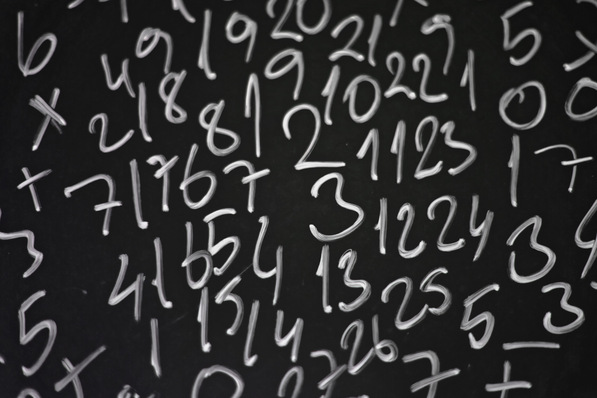 6 9 19 20 21 9 5 x
4 18 1 9 10 22 1 0 0
x 2 1 8 1 2 11 23 1 7
+ 7 1 7 6 7 3 12 24 3
3 4 1 16 5 4 13 25 5 3
5 1 15 14 26 7 -
+ 0 2 7 +